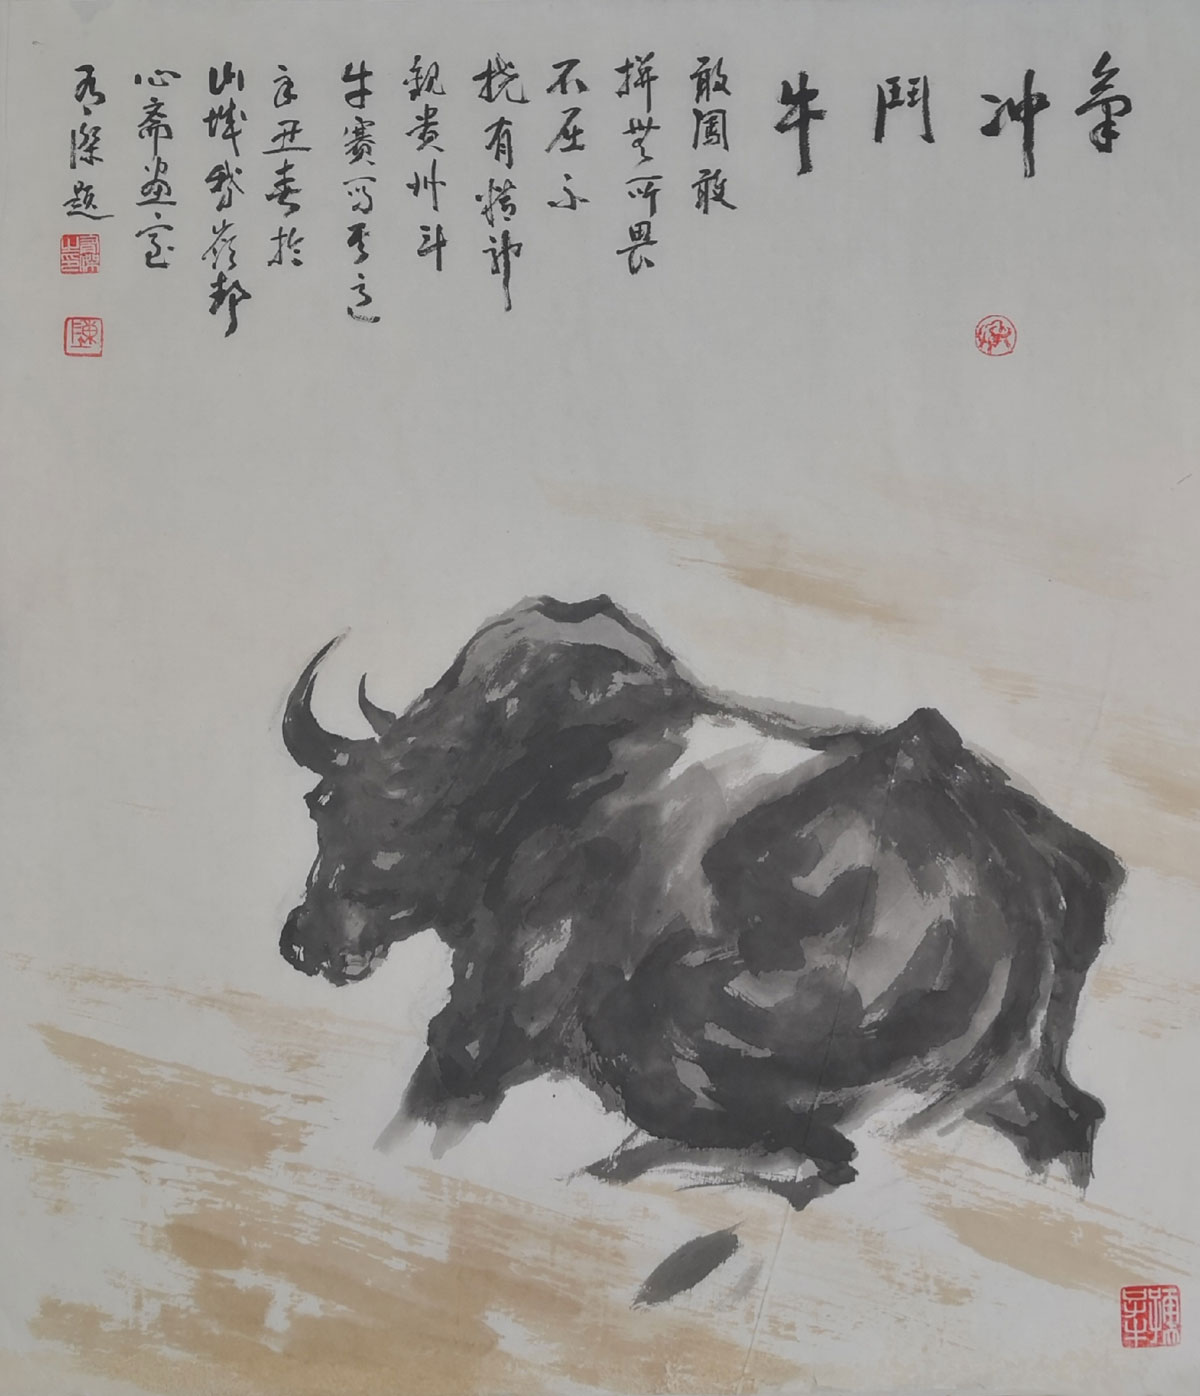 氣
冲
鬥
牛
敢闖敢
拼無所畏
不屈不
撓有精神
觀貴州斗
牛賽寫其意
辛丑春於
山城 嶺郡
心齋畫室
傑題